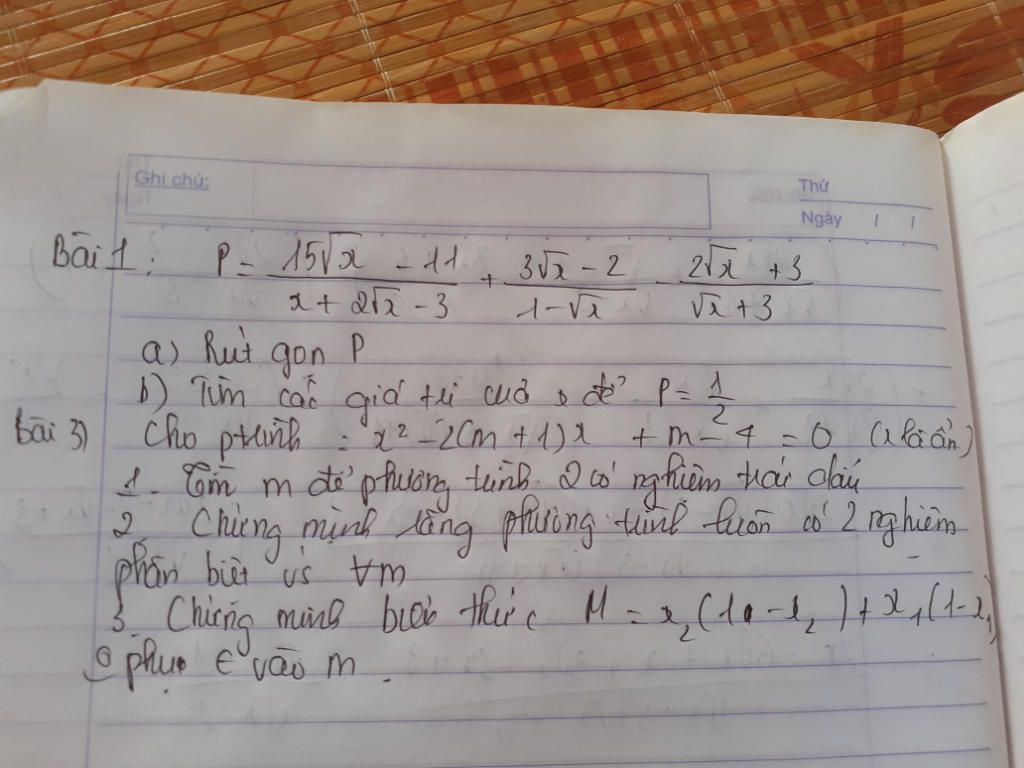 Ghi chú:
Thứ
Ngày / /
Bài 1: P = \frac{15\sqrt{x} - 11}{x + 2\sqrt{x} - 3} + \frac{3\sqrt{x} - 2}{1 - \sqrt{x}} - \frac{2\sqrt{x} + 3}{\sqrt{x} + 3}
a) Rút gọn P
b) Tìm các giá trị của x để P = \frac{1}{2}
Bài 3) Cho ptrình : x² - 2(m + 1)x + m - 4 = 0 (x là ẩn)
1. Tìm m để phương trình 2 có nghiệm trái dấu
2. Chứng minh rằng phương trình luôn có 2 nghiệm
phân biệt vs ∀m
3. Chứng minh biểu thức M = x₂(1 - x₂) + x₁(1 - x₁)
o phụ ∈ vào m.